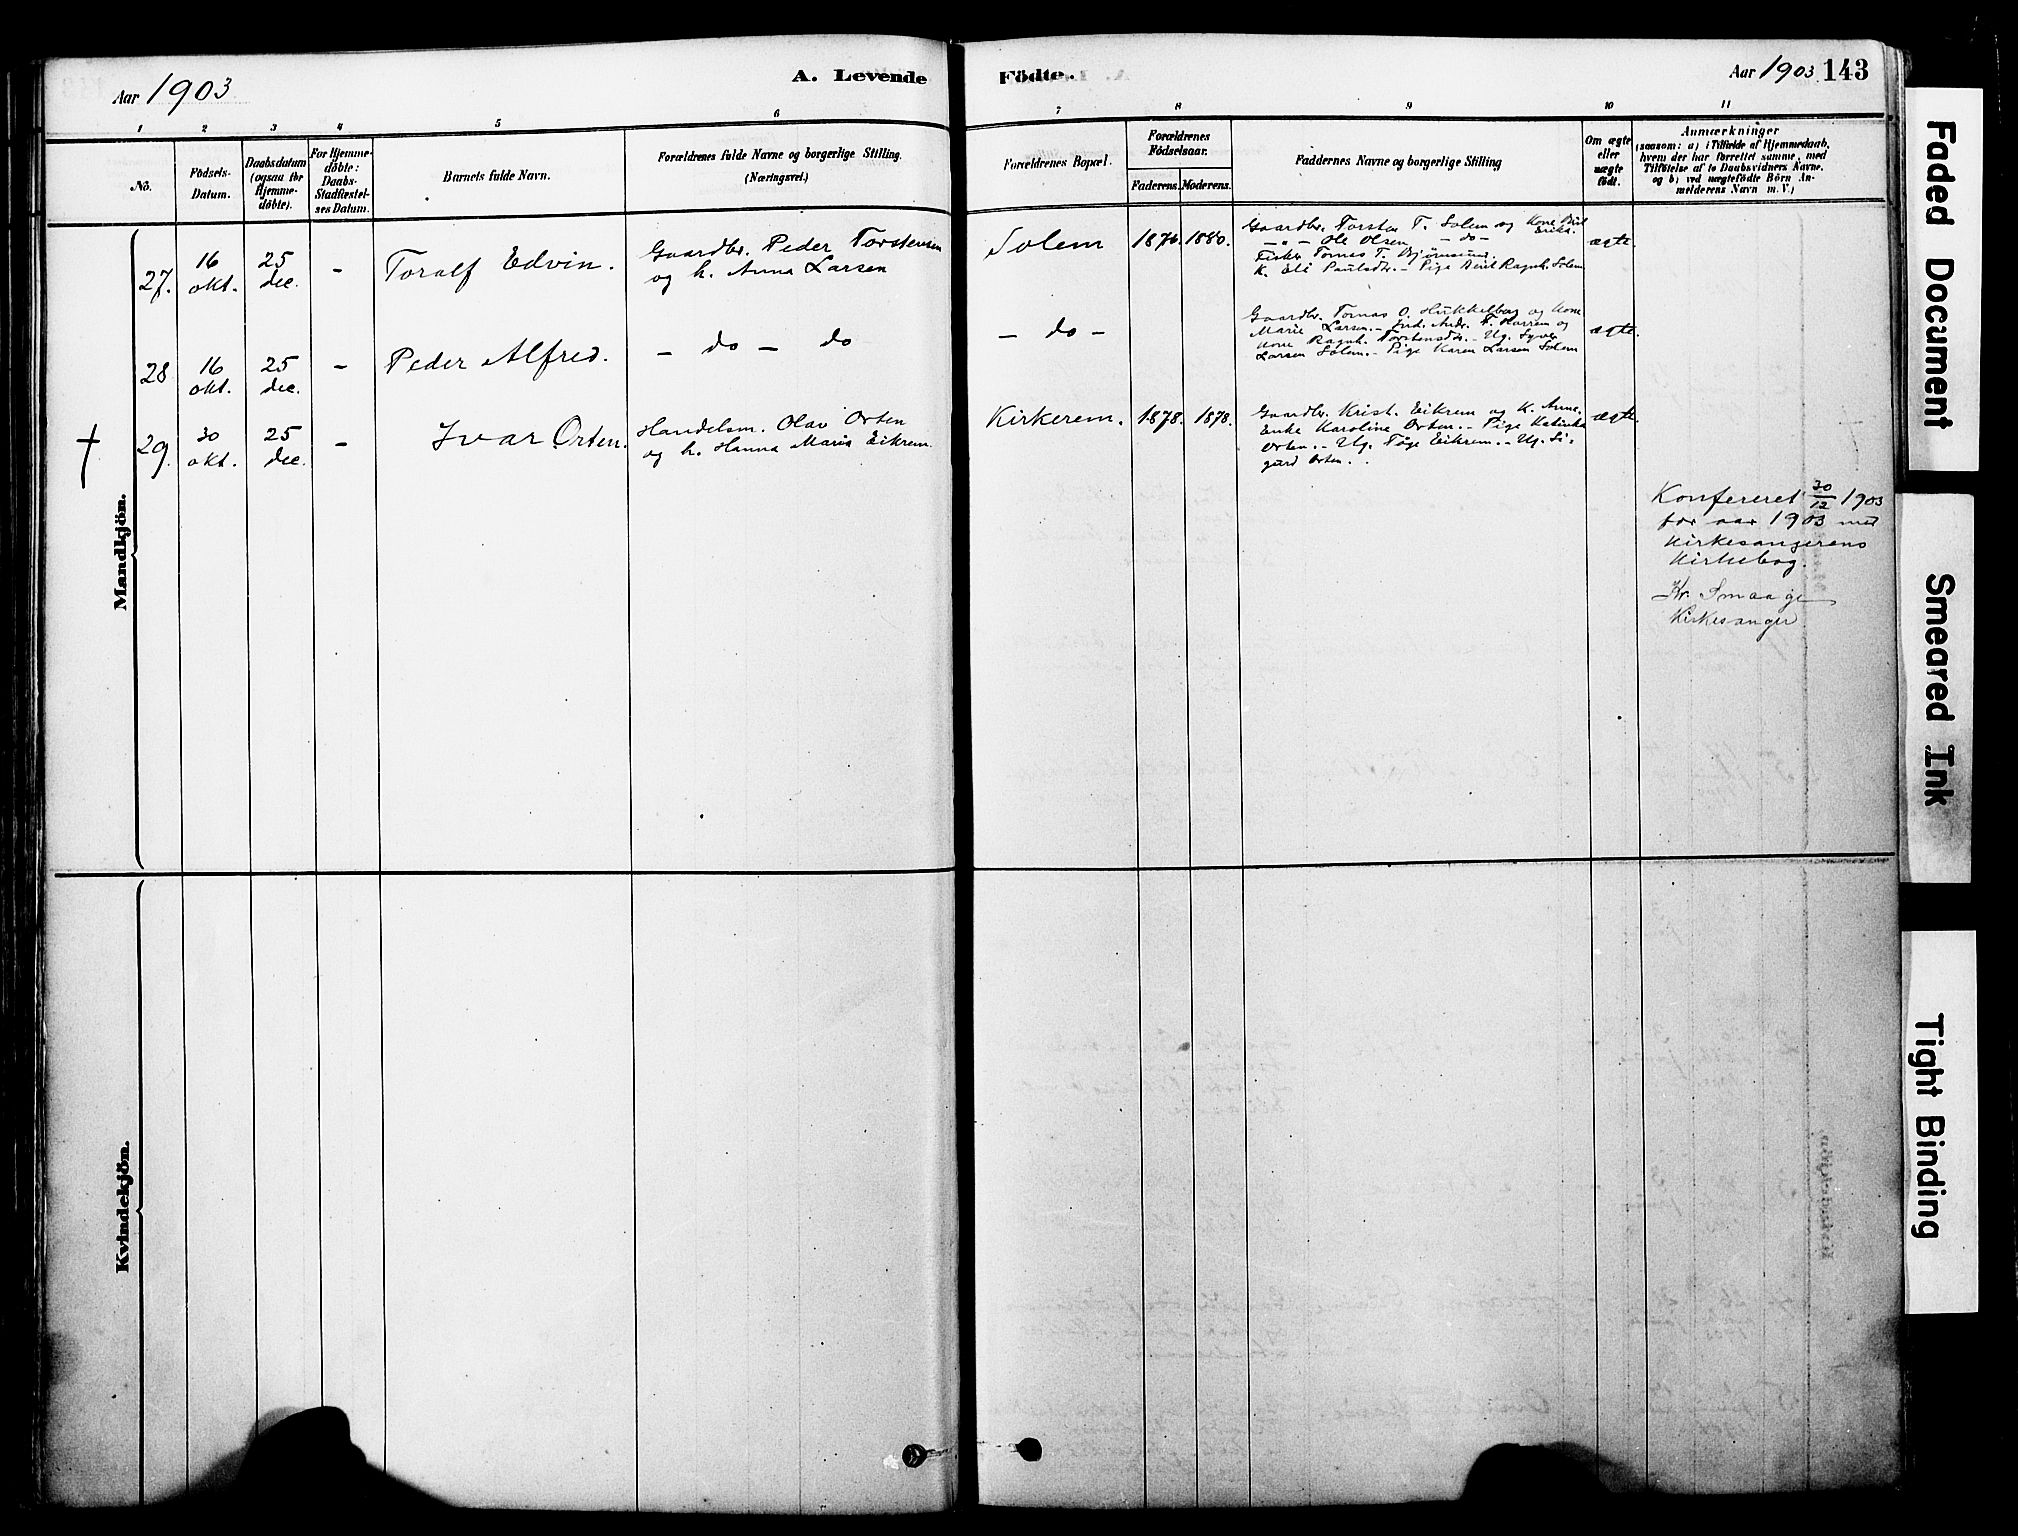 Aar 1903
A. Levende
Födte.
Aar 1903
143
1 2 3 4 5 6
7 8 9 10 11
No.
Födsels-
Datum.
Daabsdatum
(ogsaa for
Hjemme-
döbte).
For Hjemme-
döbte:
Daabs-
Stadfæstel-
ses Datum.
Barnets fulde Navn.
Forældrenes fulde Navne og borgerlige Stilling.
(Næringsvei.)
Forældrenes Bopæl.
Forældrenes
Födselsaar.
Faderens. Moderens.
Faddernes Navne og borgerlige Stilling
Om ægte
eller
uægte
født.
Anmærkninger
(saasom: a) i Tilfælde af Hjemmedaab,
hvem der har forrettet samme, med
Tilföielse af to Daabsvidners Navne,
og b) ved uægtefödte Börn An-
melderens Navn m. V.)
Mandkjön.
27.
16
okt.
25
dec.
-
Toralf Edvin.
Gaardbr. Peder Torstensen
og h. Anna Larsen
Solem
1876. 1880.
Gaardbr. Torsten T. Solem og Kone Brit
Erika.
- " - Ole Olsen - do -
Fisker Tomas T. Bjørnsund.
K. Eli Paulsdr. - Pige Berit Ragnh. Solem
ægte.
28
16
okt.
25
dec.
-
Peder Alfred.
- do - do
- do -
Gaardbr. Tomas O. Hukkelberg og Kone
Marie Larsen. - Ind. Andr. T. Harrem og
Kone Ragnh. Torstensdr. - Ug. Syver
Larsen Solem. - Pige Karen Larsen Solem
ægte.
†
29.
30
okt.
25
dec.
-
Ivar Orten.
Handelsm. Olav Orten
og h. Hanna Maria Eikrem.
Kirkerem.
1878. 1878.
Gaardbr. Krist. Eikrem og K. Anne.
Enke Karoline Orten. - Pige Katinka
Orten. - Ug. Tøge Eikrem. - Ug. Si-
gurd Orten.
ægte
Konfereret 30/12 1903
for aar 1903 med
Kirkesangerens
Kirkebog.
Kr. Smaage
Kirkesanger.
Kvindekjön.
Faded Document
Smeared Ink
Tight Binding